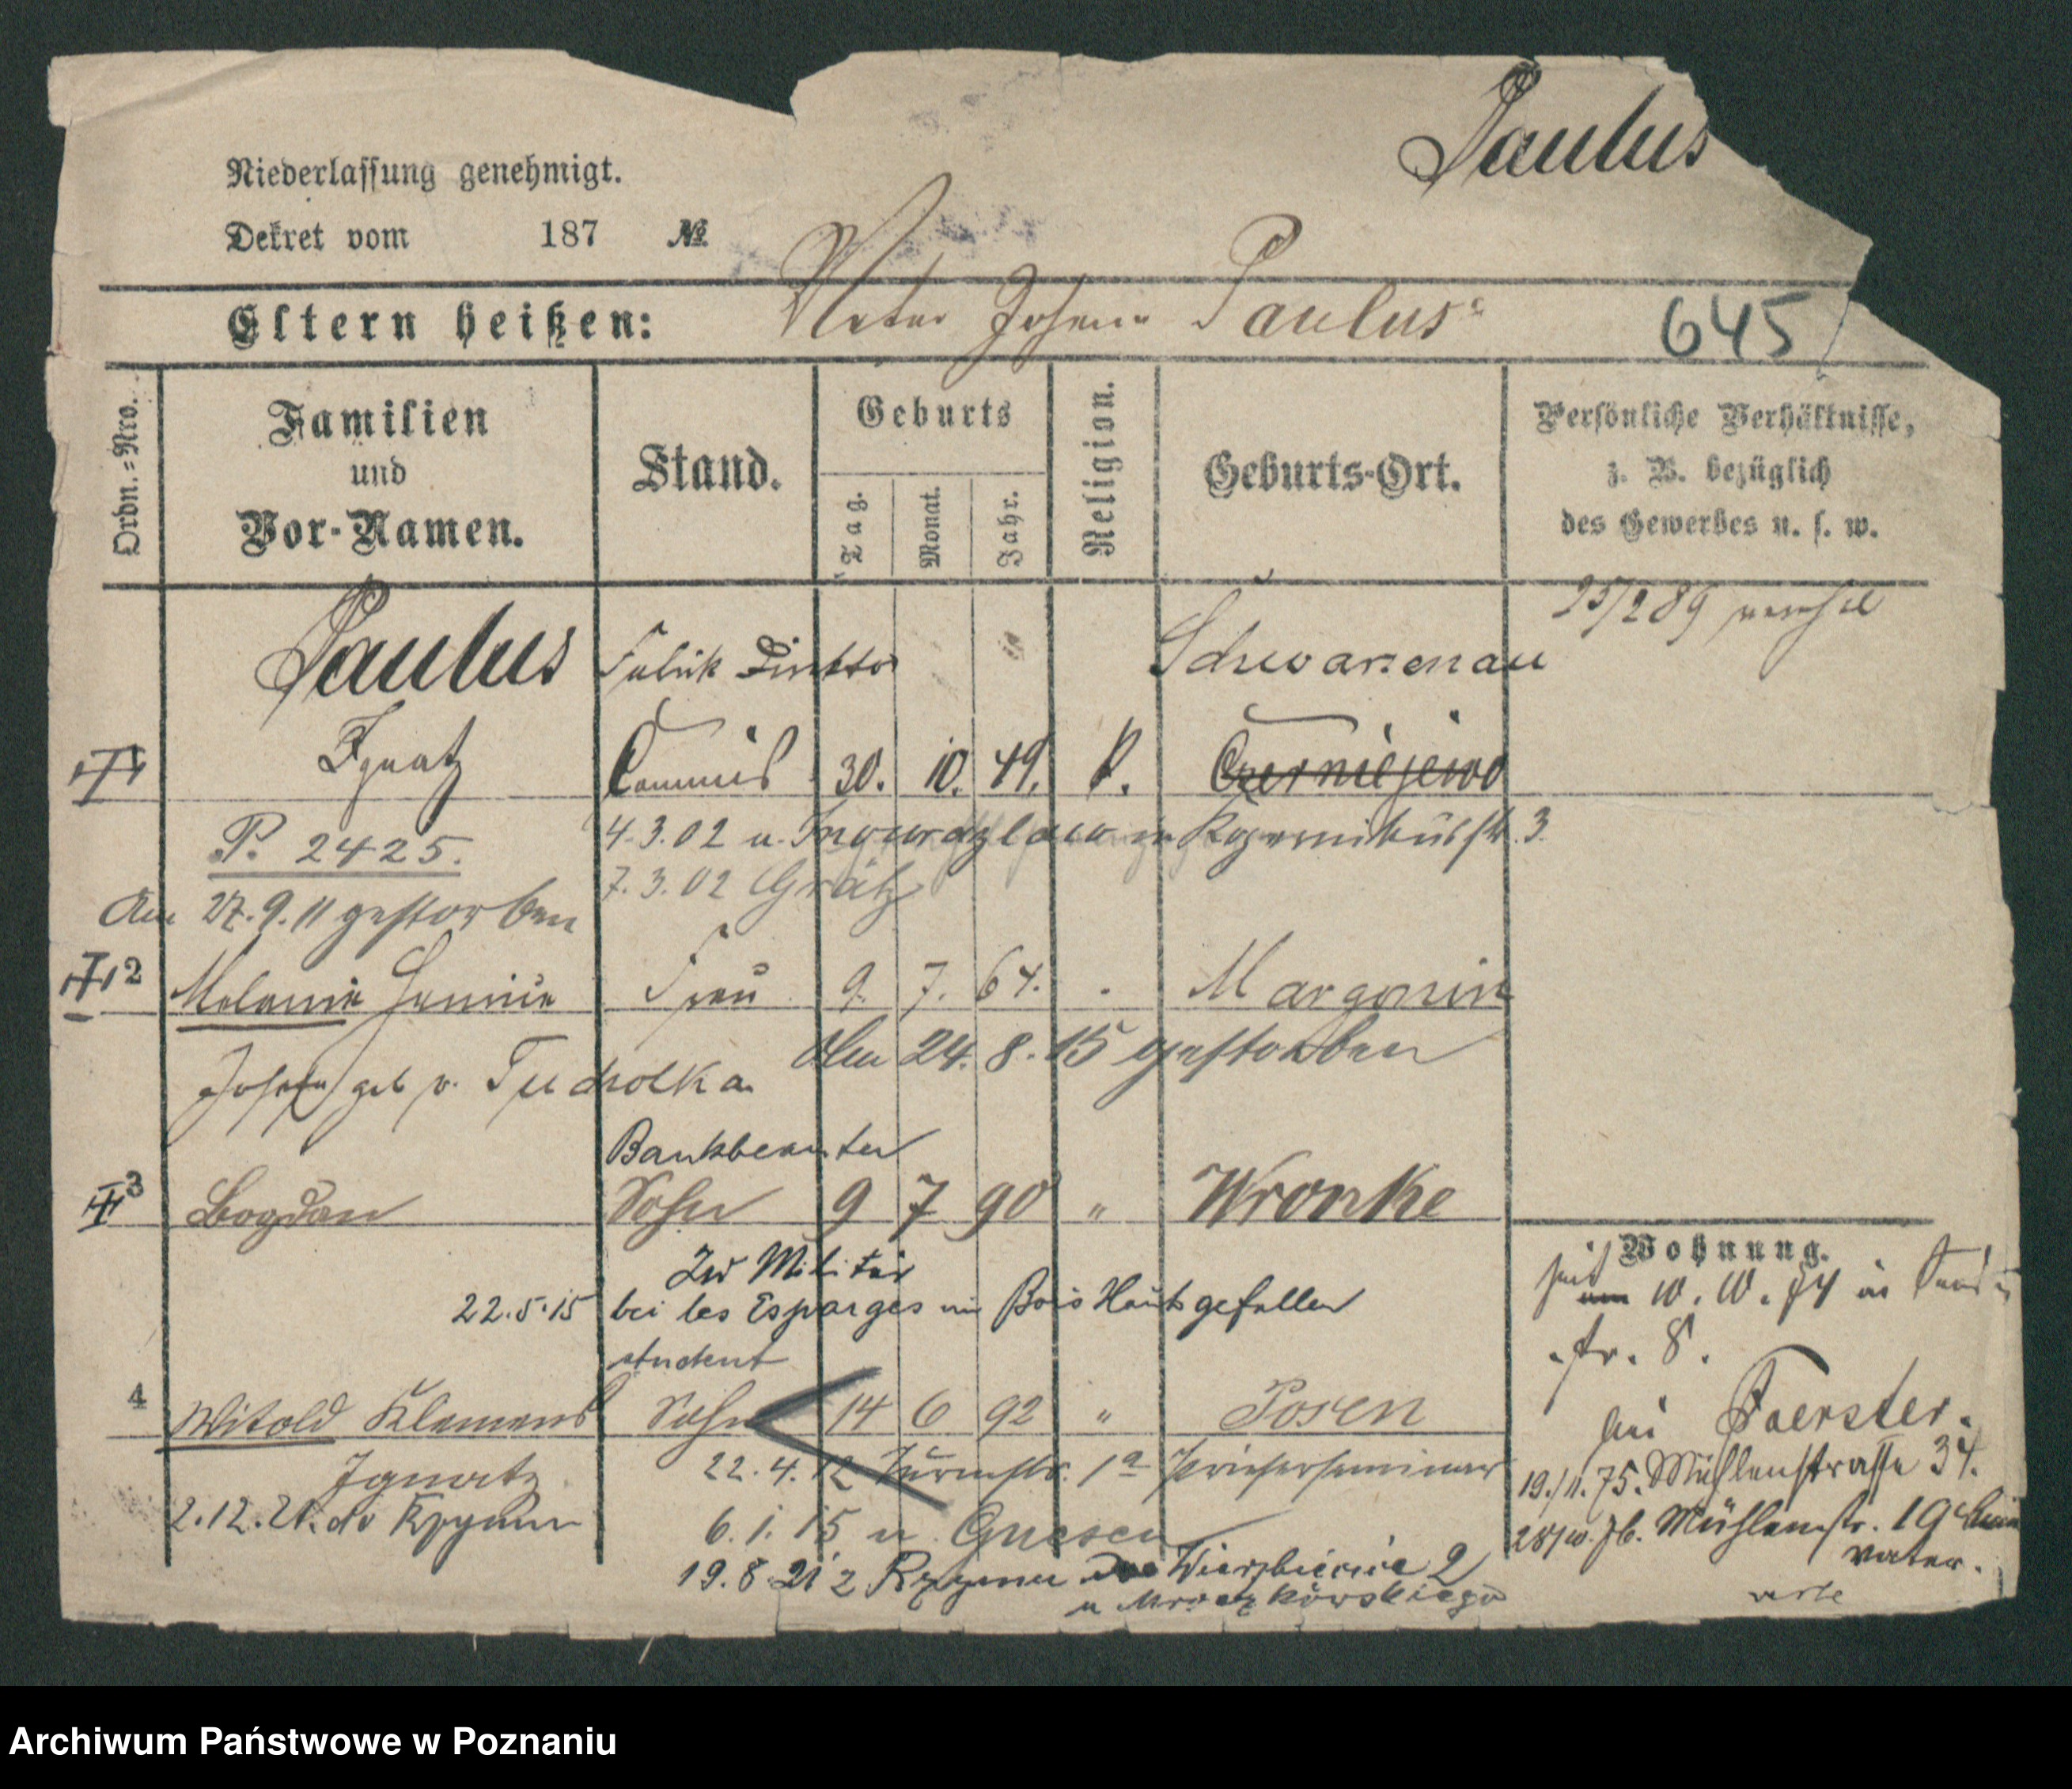 Paulus
Niederlassung genehmigt.
Dekret vom 187 №
Eltern heißen: Vater Johann Paulus
645
Ordn.=Nro.
Familien
und
Vor-Namen.
Stand.
Geburts
Tag.
Monat.
Jahr.
Religion.
Geburts-Ort.
Persönliche Verhältnisse,
z. B. bezüglich
des Gewerbes u. s. w.
25/2 89
Paulus Fabrik Direktor Schwarzenau
Ignatz Commis 30. 10. 49. k. Czerniejewo
P. 2425. 4.3.02 n. Inowrazlaw Kopernikusstr. 3.
7.3.02 Grätz
Am 27.9.11 gestorben
2 Melanie Frau 9. 7. 64. Margonin
Am 24. 8. 15 gestorben
geb v. Tucholka
Bankbeamter
3 Bogdan Sohn 9 7 90 " Wronke
Zur Militär
22.5.15 bei les Esparges im Bois Haut gefallen
student
4 Witold Klemens Sohn 14 6 92 " Posen
Ignatz 22.4.12 Turmstr. 1a Priesterseminar
2.12.21. do 6.1.15 n Gnesen
19.8 21 z Wierzbiecice 2
u Mroczkowskiego
Wohnung.
seit am 10. 10. 74 in
str. 8.
bei Foerster.
19./11. 75. Mühlenstrasse 34.
28/10. 76. Mühlenstr. 19 beim
Vater.
verte
Archiwum Państwowe w Poznaniu